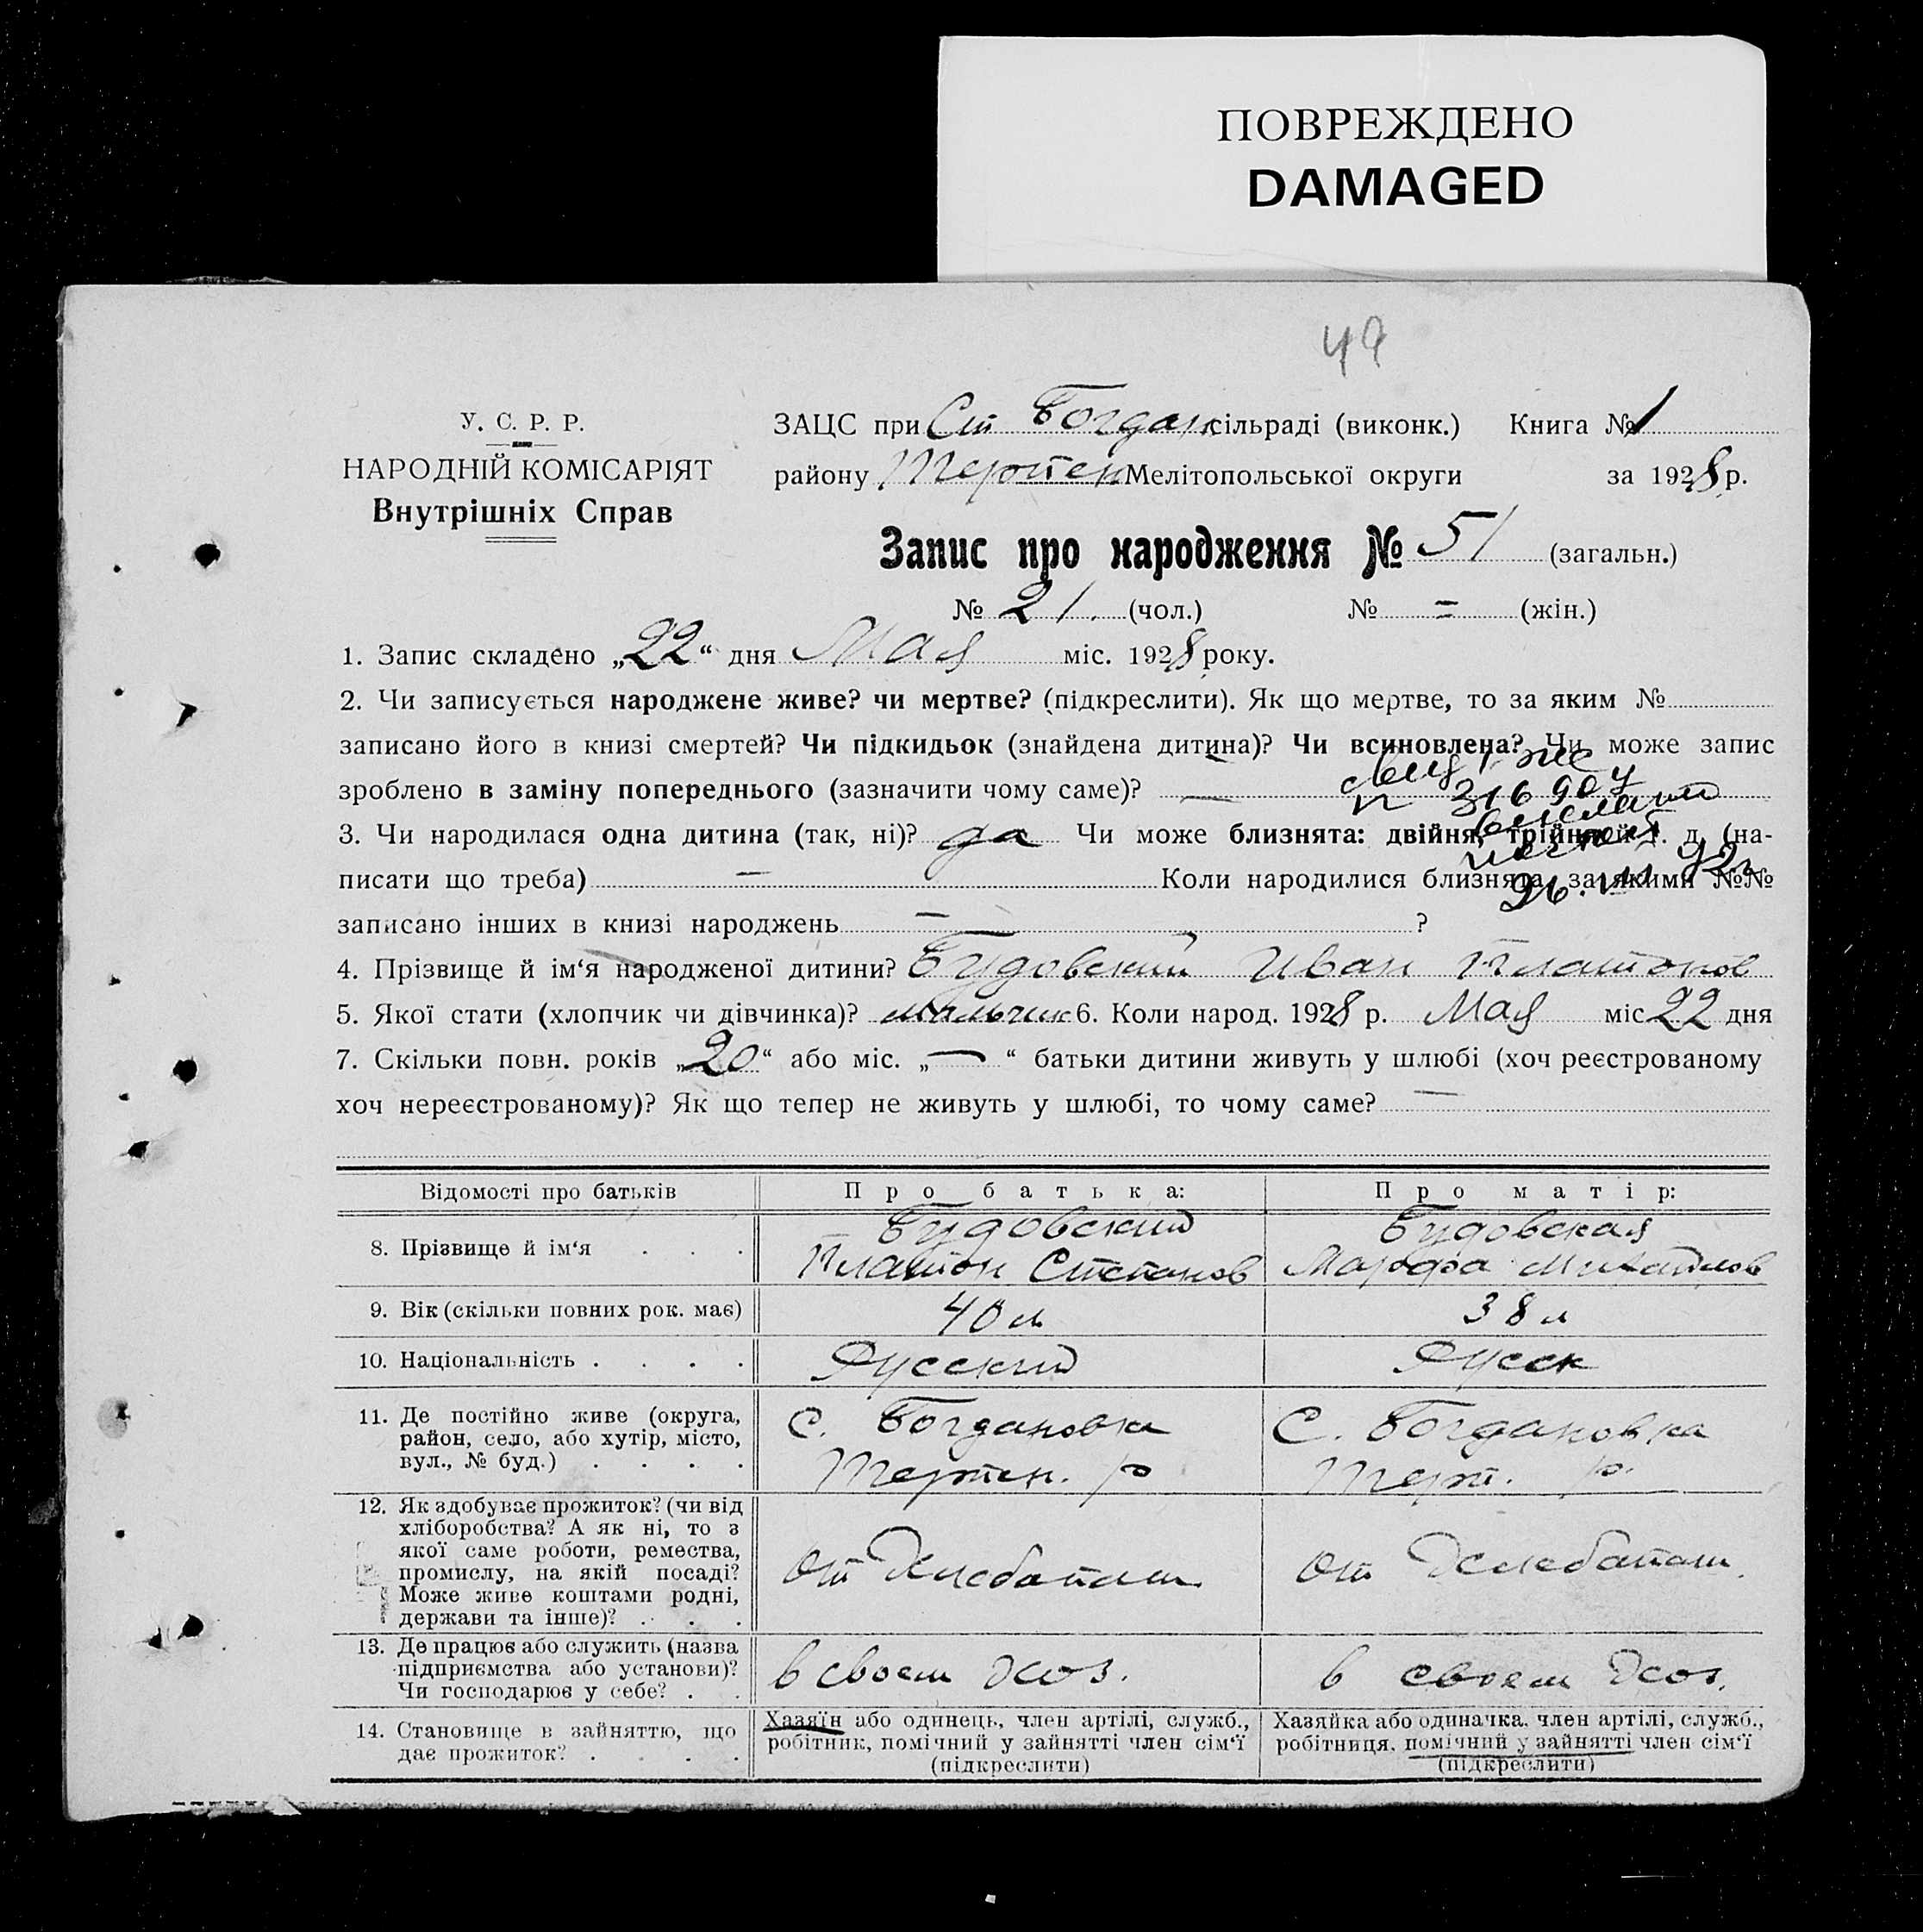 ПОВРЕЖДЕНО
DAMAGED
49
У. С. Р. Р.
НАРОДНІЙ КОМІСАРІЯТ
Внутрішніх Справ
ЗАЦС при Ст Богдан сільраді (виконк.) Книга № 1
району Терпен Мелітопольської округи за 1928 р.
Запис про народження № 51 (загальн.)
№ 21. (чол.) № = (жін.)
1. Запис складено „22“ дня Мая міс. 1928 року.
2. Чи записується народжене живе? чи мертве? (підкреслити). Як що мертве, то за яким №
записано його в книзі смертей? Чи підкидьок (знайдена дитина)? Чи всиновлена? Чи може запис
зроблено в заміну попереднього (зазначити чому саме)? —
№ 316904
3. Чи народилася одна дитина (так, ні)? да Чи може близнята: двійня, трійня й т. д. (на-
писати що треба) — Коли народилися близнята, за якими №№
записано інших в книзі народжень — ?
4. Прізвище й ім‘я народженої дитини? Будовский Иван Платонов
5. Якої стати (хлопчик чи дівчинка)? мальчик 6. Коли народ. 1928 р. Мая міс 22 дня
7. Скільки повн. років „20“ або міс. „—“ батьки дитини живуть у шлюбі (хоч реєстрованому
хоч нереєстрованому)? Як що тепер не живуть у шлюбі, то чому саме? —
Відомості про батьків
Про батька:
Про матір:
8. Прізвище й ім‘я . . .
Будовский
Платон Степанов
Будовская
Марфа Михайлов
9. Вік (скільки повних рок. має)
40 л
38 л
10. Національність . . . .
Русский
Русск
11. Де постійно живе (округа,
район, село, або хутір, місто,
вул., № буд.) . . . .
С. Богдановка
Терпен. р
С. Богдановка
Терп. р.
12. Як здобуває прожиток? (чи від
хліборобства? А як ні, то з
якої саме роботи, ремества,
промислу, на якій посаді?
Може живе коштами родні,
держави та інше)? . . .
От Хлебопаш.
От Хлебопаш.
13. Де працює або служить (назва
підприємства або установи)?
Чи господарює у себе? . .
в своем хоз.
в своем хоз.
14. Становище в зайняттю, що
дає прожиток? . . . .
Хазяїн або одинець, член артілі, служб.,
робітник, помічний у зайнятті член сім‘ї
(підкреслити)
Хазяйка або одиначка, член артілі, служб.,
робітниця, помічний у зайнятті член сім‘ї
(підкреслити)